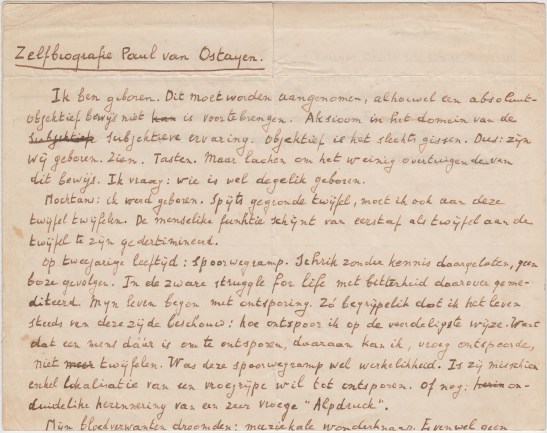 Zelfbiografie Paul van Ostayen.
Ik ben geboren. Dit moet worden aangenomen, alhouwel een absoluut-
objektief bewijs niet kan is voortebrengen. Aksioom in het domein van de
subjektief subjektieve ervaring. Objektief is het slechts gissen. Dus: zijn
wij geboren. Zien. Tasten. Maar lachen om het weinig overtuigende van
dit bewijs. Ik vraag: wie is wel degelik geboren.
Mochtans: ik werd geboren. Spijts gegronde twijfel, moet ik ook aan deze
twijfel twijfelen. De menselike funktie schijnt van eerstaf als twijfel aan de
twijfel te zijn gedertimineerd.
Op tweejarige leeftijd: spoorwegramp. Schrik zonder kennis daargelaten, geen
boze gevolgen. In de zware struggle for life met bitterheid daarover geme-
diteerd. Mijn leven begon met ontsporing. Zó begrijpelik dat ik het leven
steeds van deze zijde beschouw: hoe ontspoor ik op de voordeligste wijze. Want
dat een mens dáár is om te ontsporen, daaraan kan ik, vroeg ontspoorde,
niet meer twijfelen. Was deze spoorwegramp wel werkelikheid. Is zij misschien
enkel lokalisatie van een vroegrijpe wil tot ontsporen. Of nog: on-
duidelike herinnering van een zeer vroege "Alpdruck".
Mijn bloedverwanten droomden: muziekale wonderknaap. Evenwel geen